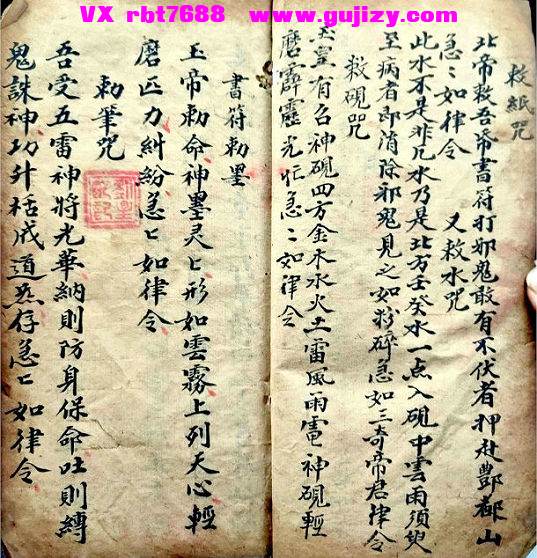 VX rbt7688 www.gujizy.com
敕紙咒
北帝敕吾帋書符打邪鬼敢有不伏者押赴酆都山
急〻如律令 又敕水咒
此水不是非凡水乃是北方壬癸水一点入硯中雲雨須臾
至病者即消除邪鬼見之如粉碎急如三奇帝君律令
敕硯咒
玉皇有召神硯四方金木水火土雷風雨電神硯輕
磨霹靂光芒急〻如律令
書符勅墨
玉帝勅命神墨灵〻形如雲霧上列天心輕
磨匹力糾紛急〻如律令
勅筆咒
吾受五雷神將光華納則防身保命吐則縛
鬼誅神功升成道存急〻如律令